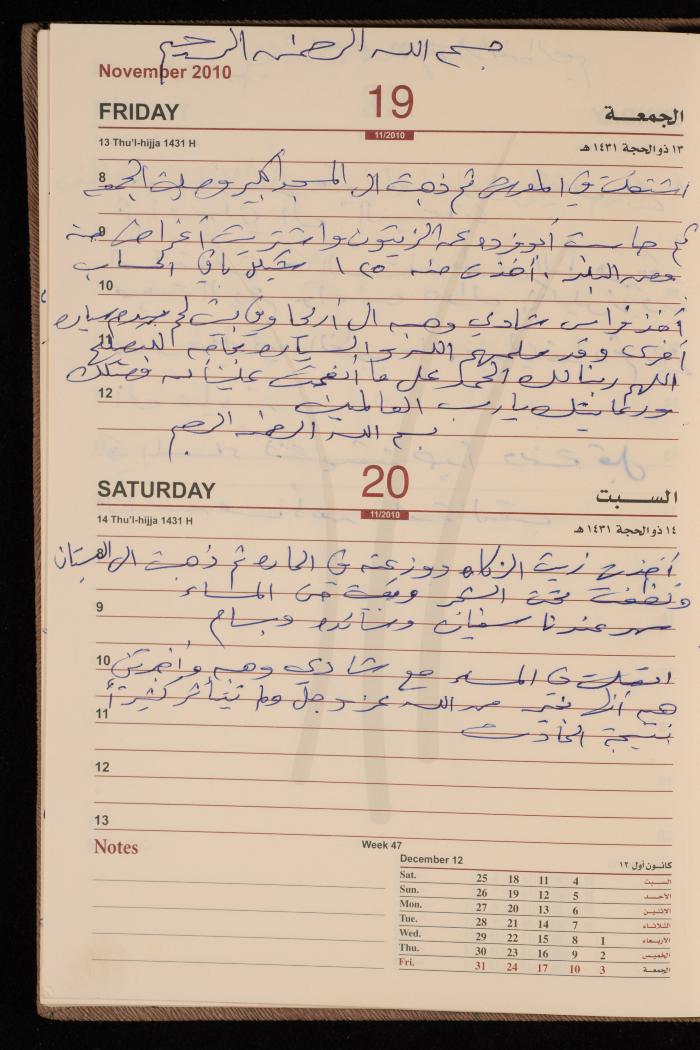 بسم الله الرحمن الرحيم
November 2010
FRIDAY 19 الجمعة
11/2010
13 Thu'l-hijja 1431 H ١٣ ذو الحجة ١٤٣١ هـ
8 اشتغلت في المعرض ثم ذهبت الى المسجد الكبير وصليت الجمعة
9 ثم حاسبت أبو فرده عن الزيتون واشتريت أغراض من
وسط البلد، أخذت منه ١٢٥ شيكل باقي الحساب
10
أخذ فراس شادي وهبه الى أريحا
11 أخرى وقد سلمهم الله والسيارة بحاجة للتصليح
اللهم ربنا لك الحمد على ما أنعمت علينا من فضلك
12 ورعايتك يارب العالمين
بسم الله الرحمن الرحيم
SATURDAY 20 السبت
11/2010
14 Thu'l-hijja 1431 H ١٤ ذو الحجة ١٤٣١ هـ
8 أخذت زيت الزكاه ووزعته في الحاره ثم ذهبت الى البستان
ونظفت تحت الشجر وبقيت حتى المساء
9 سهر عندنا سفيان وبسام
10 اتصلت في المساء مع شادي وهبه وأخبرتني
هبه أنها بخير من الله عز وجل ولم تتأثر كثيراً
11 نتيجة الحادث
12
13
Notes
Week 47
December 12 كانون أول ١٢
Sat. 25 18 11 4 السبت
Sun. 26 19 12 5 الأحد
Mon. 27 20 13 6 الاثنين
Tue. 28 21 14 7 الثلاثاء
Wed. 29 22 15 8 1 الأربعاء
Thu. 30 23 16 9 2 الخميس
Fri. 31 24 17 10 3 الجمعة